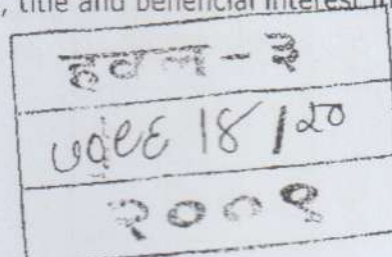 , title and beneficial interest
हवल - ३
18/20
२००९